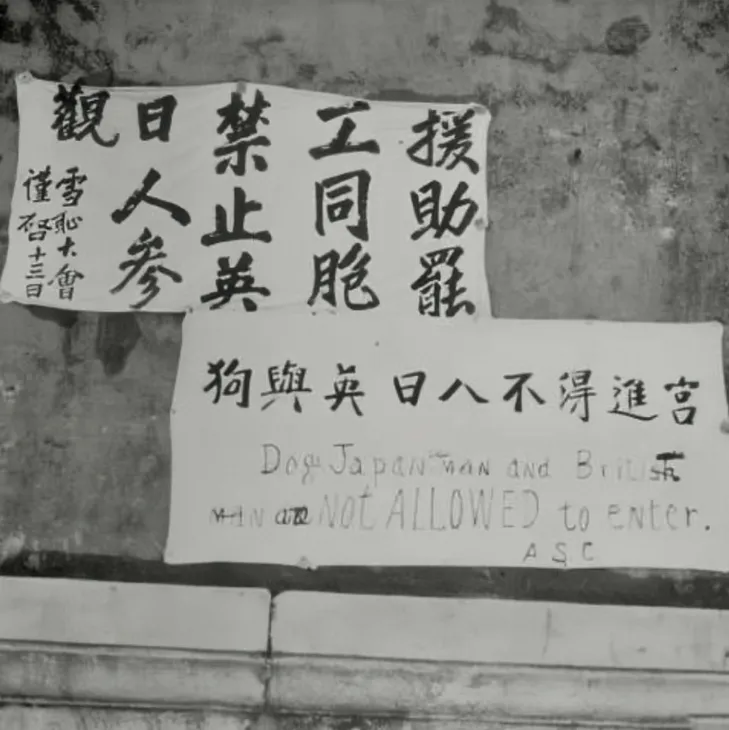 援助罷
工同胞
禁止英
日人參
觀
雪恥大會
謹啓十三日
狗與英日人不得進宮
Dog Japan man and British
MAN are NOT ALLOWED to enter.
A S C